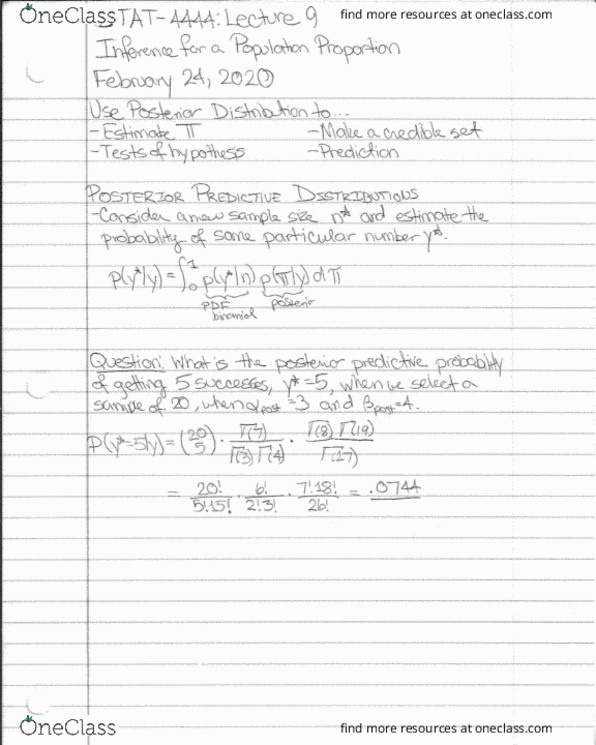 OneClass
find more resources at oneclass.com
STAT-4444: Lecture 9
Inference for a Population Proportion
February 24, 2020
Use Posterior Distribution to...
- Estimate π - Make a credible set
- Tests of hypothess - Prediction
POSTERIOR PREDICTIVE DISTRIBUTIONS
- Consider a new sample size n* and estimate the
probability of some particular number y*.
p(y*|y) = ∫₀¹ p(y*|π) p(π|y) dπ
PDF posterior
binomial
Question: What is the posterior predictive probability
of getting 5 successes, y*=5, when we select a
sample of 20, when αpost =3 and βpost=4.
P(y*=5|y) = (20 5) · Γ(7) / Γ(3) Γ(4) · Γ(8) Γ(19) / Γ(27)
= 20! / 5!15! · 6! / 2!3! · 7!18! / 26! = .0744
OneClass
find more resources at oneclass.com